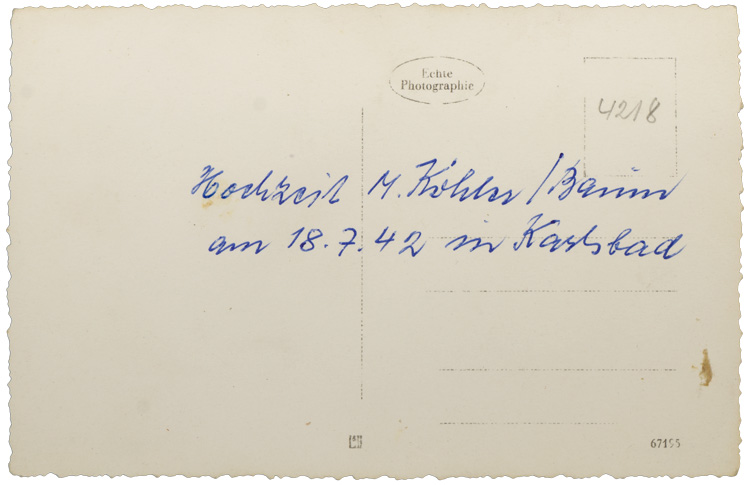 Echte
Photographie
4218
Hochzeit M. Köhler / Baum
am 18.7.42 in Karlsbad
67155